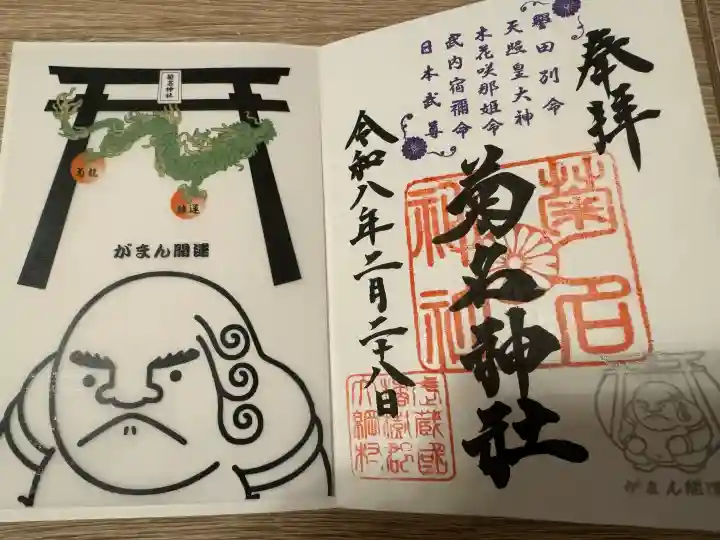 菊名神社
菊龍
雄運
がまん開運
奉拝
譽田別命
天照皇大神
木花咲耶姫命
武内宿禰命
日本武尊
菊名神社
菊名神社
令和八年二月二十八日
武蔵國
橘樹郡
大綱村
がまん開運